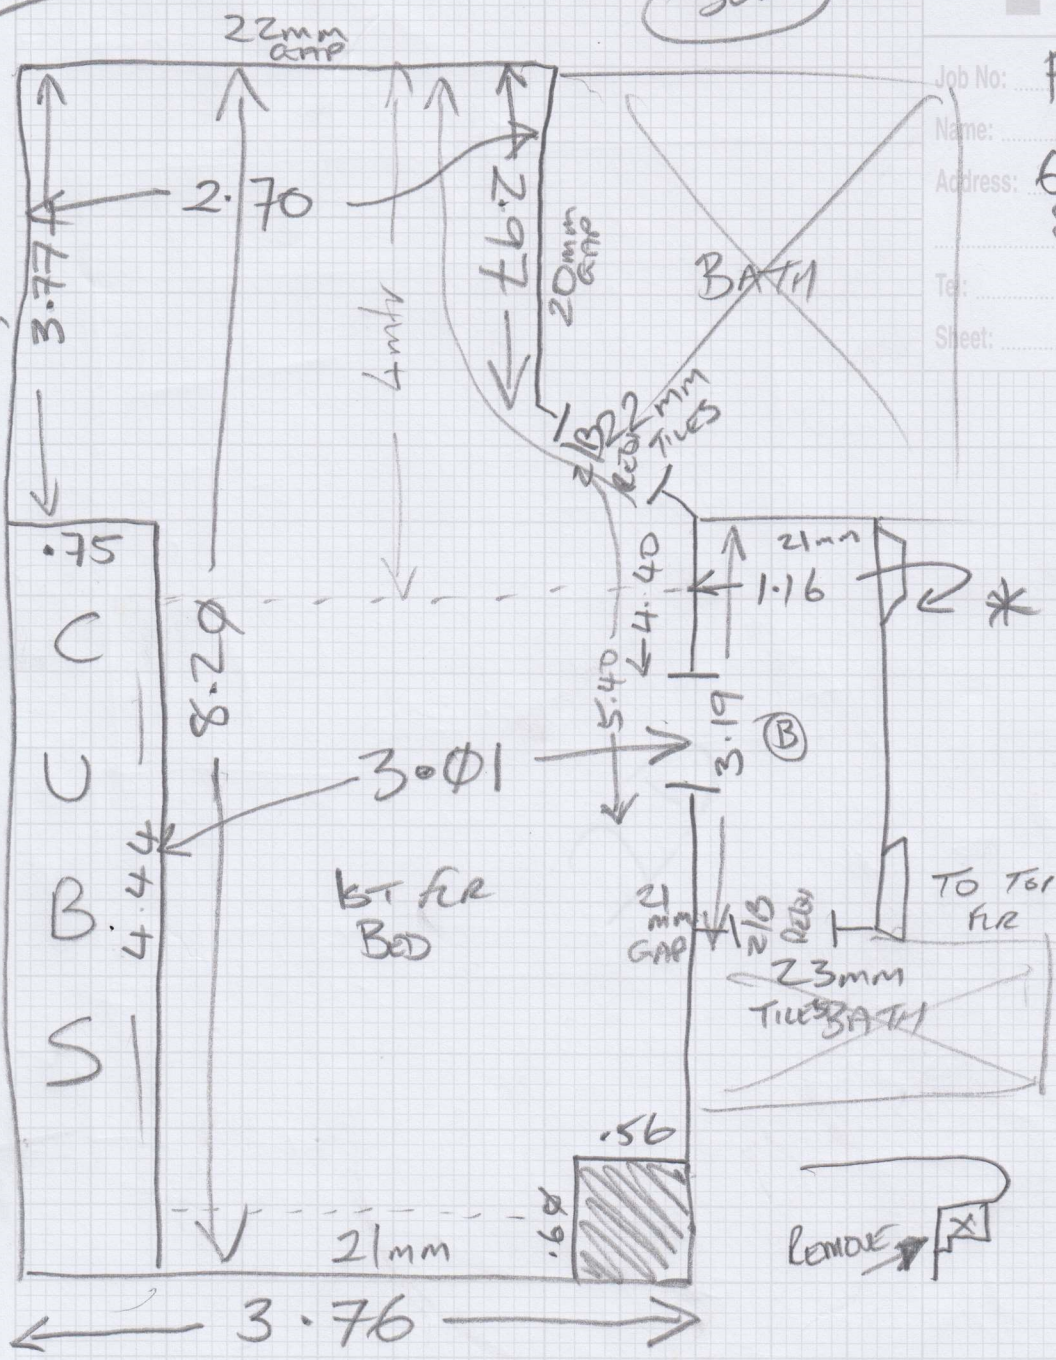 22mm
GAP
Job No:
Name:
Address:
Tel:
Sheet:
2.70
3.77
2.97
20mm
GAP
4mtr
BATH
22mm
TILES
Z/B
REDY
.75
C
U
B
S
4.44
8.20
4.40
5.40
21mm
1.16
*
3.19
B
3.01
1ST FLR
BED
21
mm
GAP
Z/B
REDY
23mm
TILES
BATH
TO TOP
FLR
.56
.60
21mm
REMOVE
X
3.76